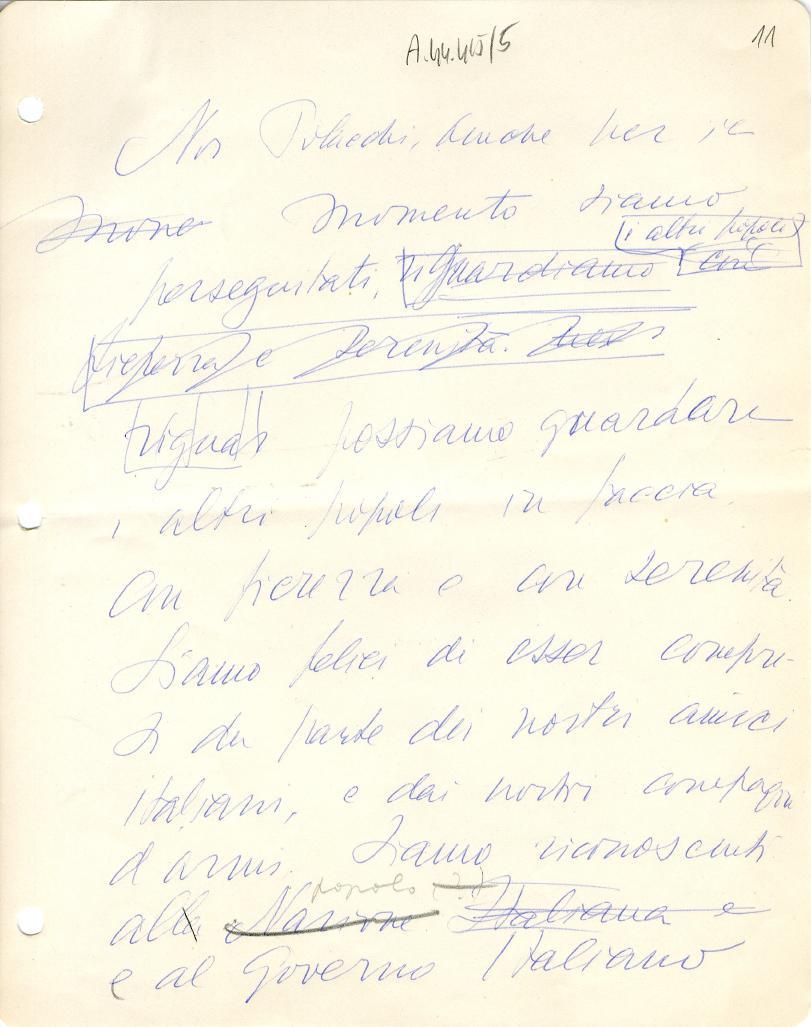 A.44.415/5
11
Noi Polacchi, benche per il
mono momento siamo
i altri popoli
perseguitati, riguardiamo con
fierezza e serenità.
rigua possiamo guardare
i altri popoli in faccia
con fierezza e con serenità.
Siamo felici di esser compre-
si da parte dei nostri amici
italiani, e dai nostri compagni
d'armi. Siamo riconoscenti
popolo (?)
alla Nazione Italiana e
e al Governo Italiano